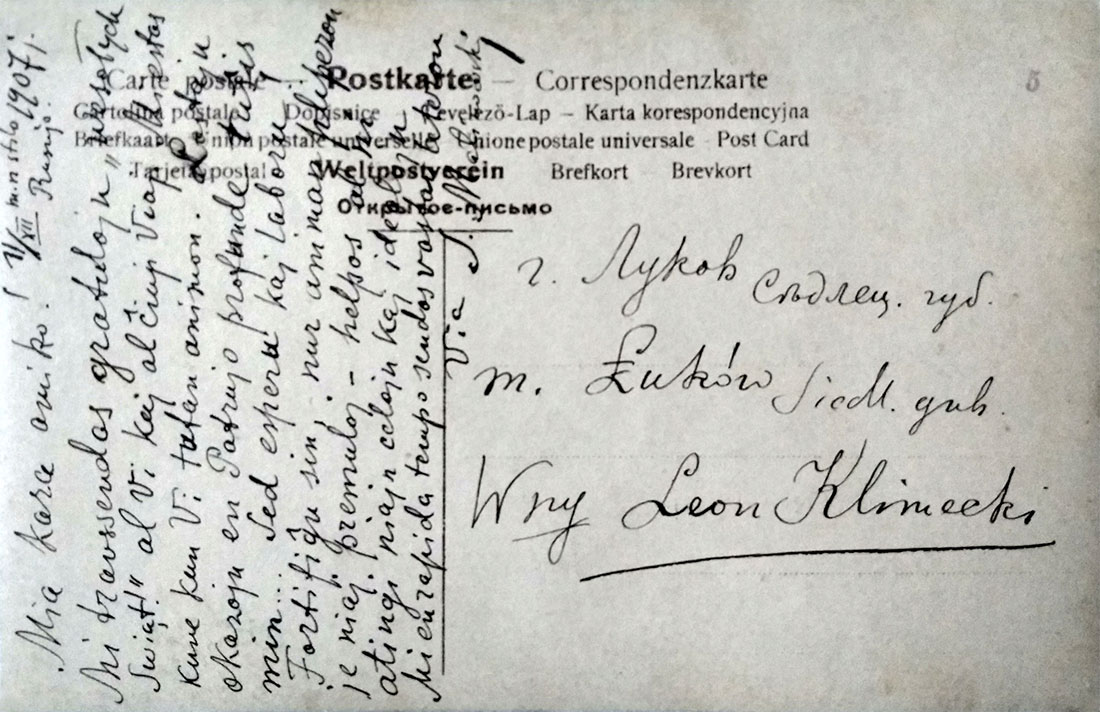 Carte postale — Postkarte — Correspondenzkarte
Cartolina postale Dopisnice Levelező-Lap — Karta korespondencyjna
Briefkaart Union postale universelle Unione postale universale Post Card
Tarjeta postal Weltpostverein Brefkort Brevkort
Открытое-письмо
5
г. Луковъ Сѣдлец. губ.
m. Łuków Siedl. gub.
Wny Leon Klimecki
1907 j.
Mia kara amiko!
Mi transsendas gratulojn „wesołych
Świąt!" al Vi kaj al ĉiuj Viaj
kune kun Vi tutan animon.
okazoj en Patrujo profunde tuŝis
min... Sed esperu kaj laboru,
Fortifiĝu sin, nur
je niaj premuloj — helpos al ni
atingi niajn celojn kaj idealojn
Mi en rapida tempo sendos
Via S.